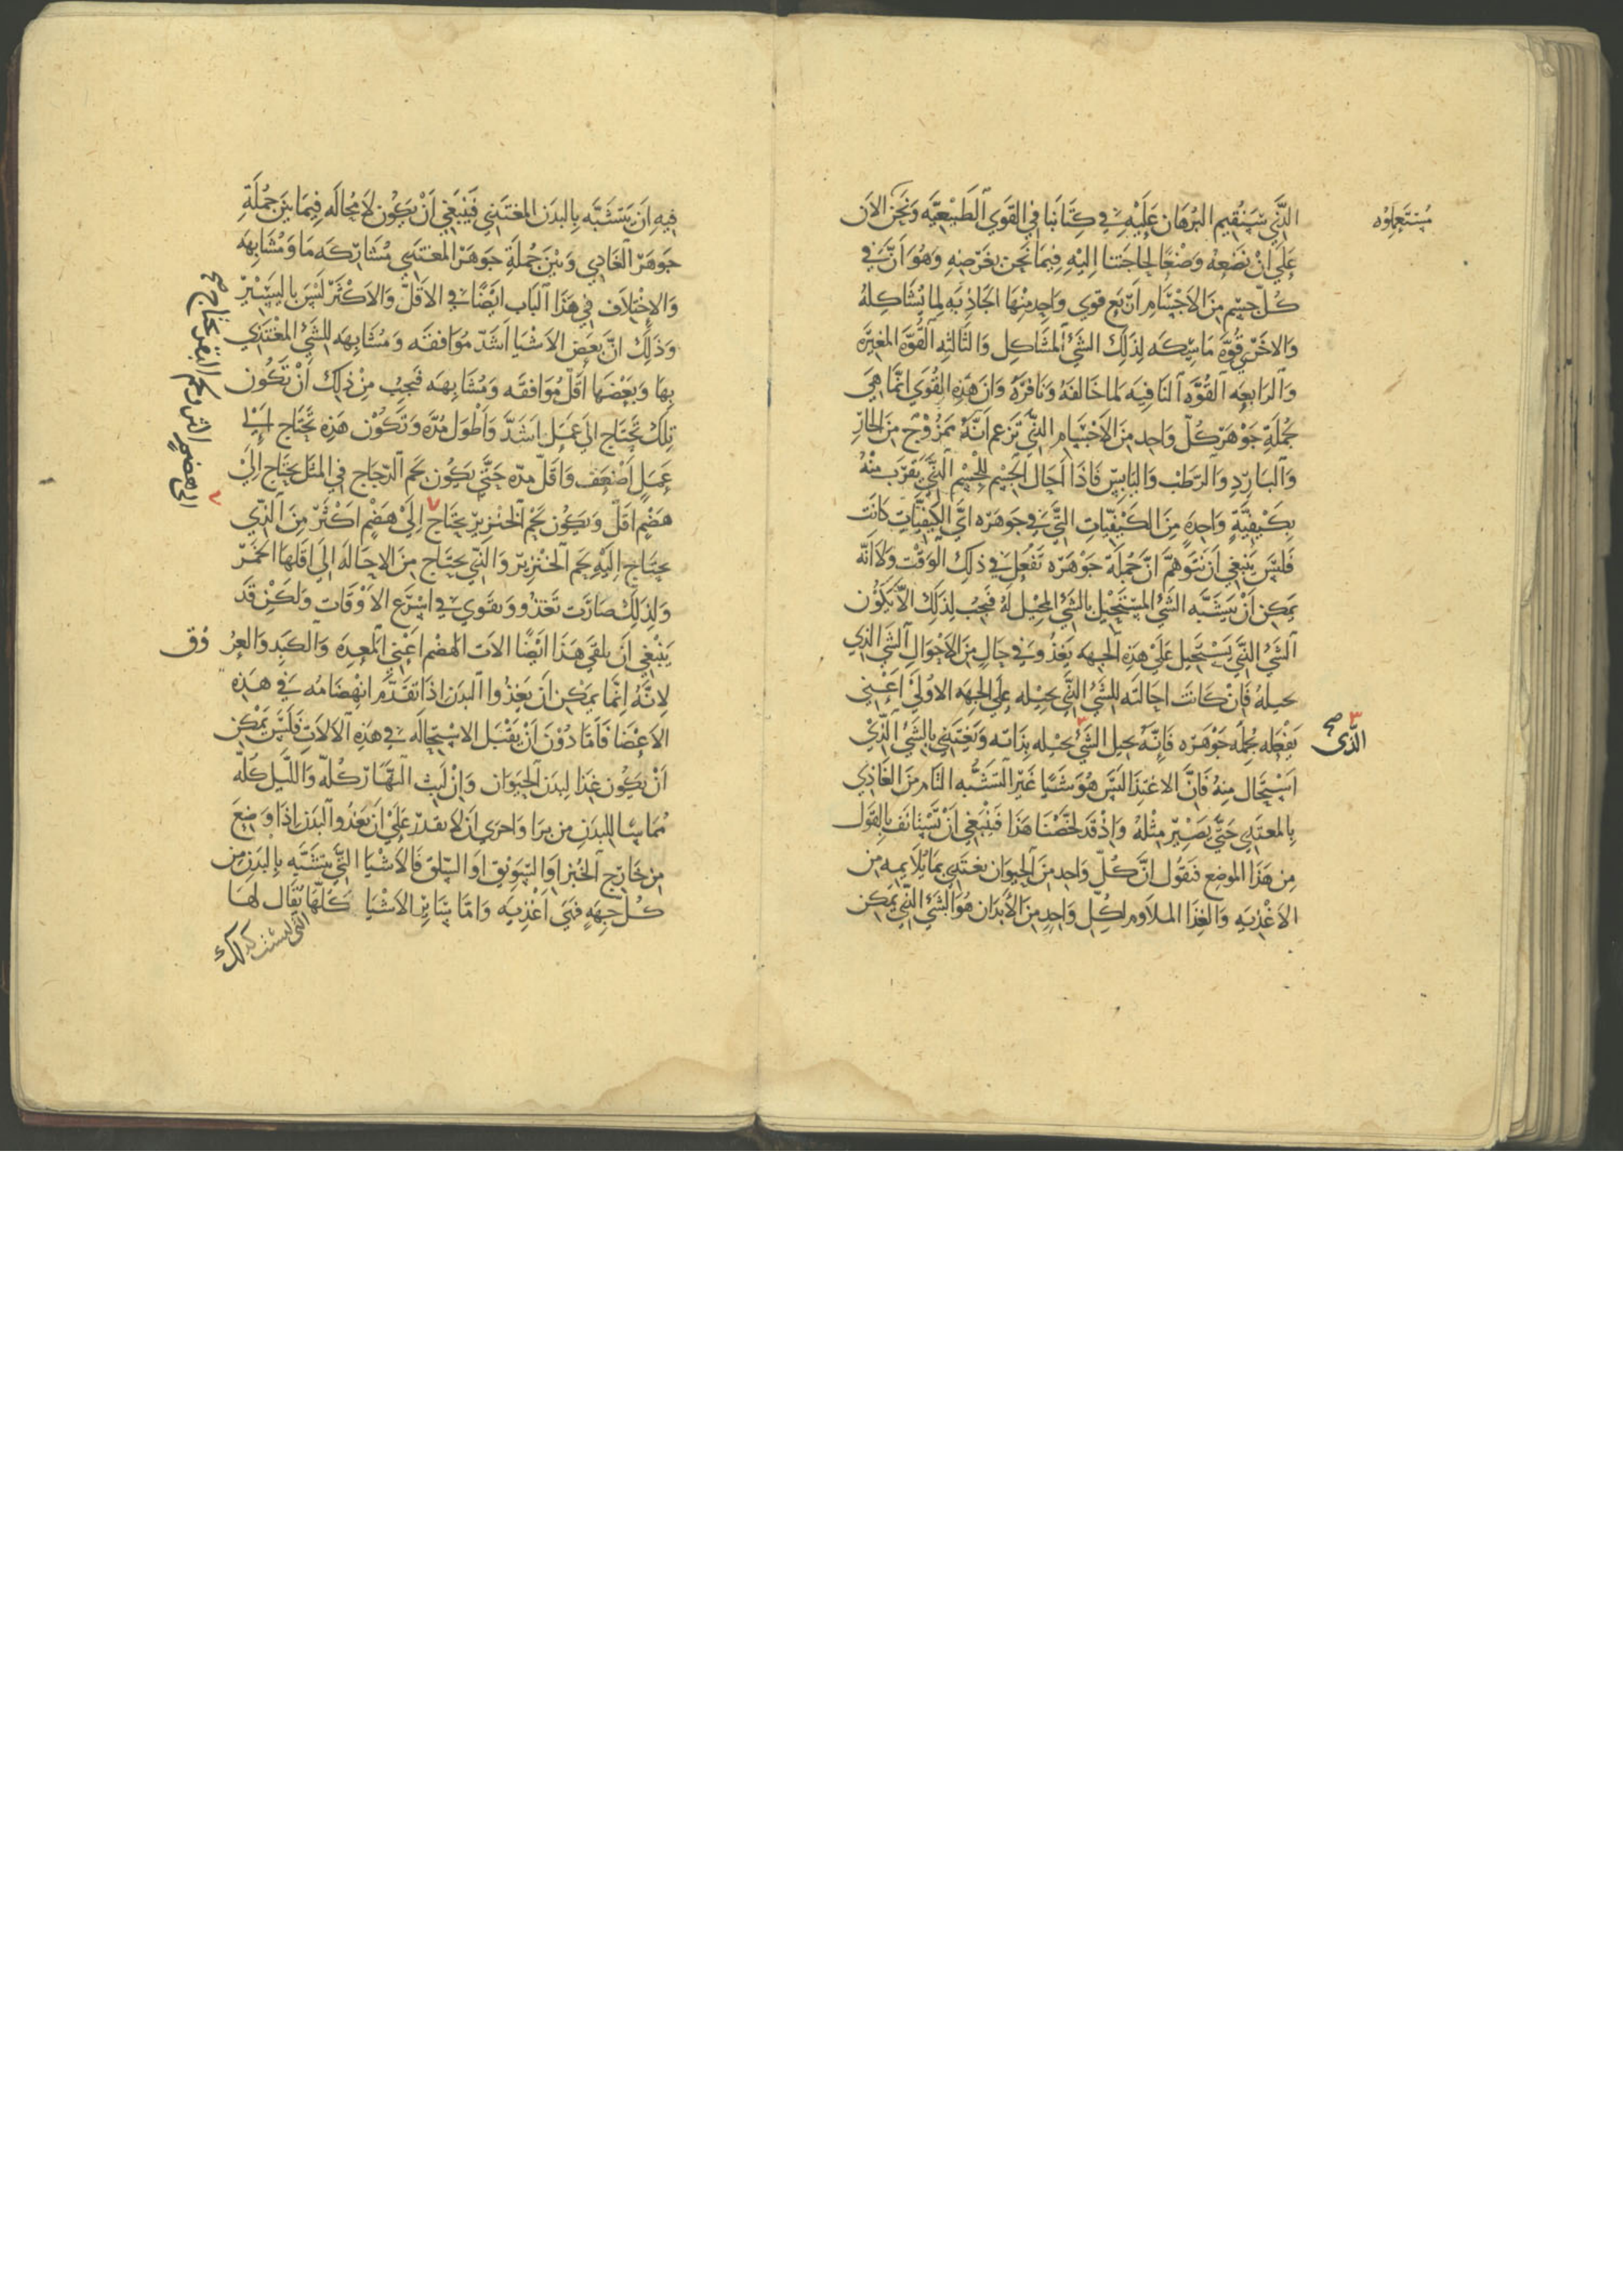 الَّذِي سَنُقِيم البُرْهَان عَلَيْهِ فِي كِتَابنَا فِي القوَي الطَبْيعيَّه وَنَحْنُ الآن
مُسْتَعْمِلوْه
عَلَي اَنْ نَضَعهُ وَضْعًا لحِاجَتنا اِليْهِ فِيمَا نَحْنُ بغَرَضِهِ وَهُوَ اَنَّ فِي
كُلّ جِسْم مِنَ الاَجْسَام اَرْبَع قوي وَاحِد مِنْهَا الجَاذِبَه لِمَا يُشَاكِلهُ
وَالاخْرَي قُوَّه مَاسِكَه لِذَلِكَ الشَيْ المُشَاكِل وَالثَالثِه القُوَّه المُغيِّرَه
وَالرَابِعِه القُوَّه النَافِيَه لمَا خَالفَهُ وَنَافرَهُ وَانَ هَذِهِ القُوَي انَّمَا هِيَ
جُمْلَةِ جَوْهَرَ كُلّ وَاحِد مِنَ الاَجْسَام الَّتِي تَزعم اَنَّهُ مَمْزُوْج مِنَ الحَارّ
وَالبَارِدِ وَالرَطْب وَاليَابِس فَاذَا اَحَال الجَسْم لِلجْسْم الَّذِي يَقْرَب مِنْهُ
بِكَيْفِيَّةٍ وَاحِدَه مِنَ الكَيْفِيَّاتِ الَّتِي فِي جَوهَرَه ايَّ الكَيْفِيَّاتِ كَانَت
فَليْسَ يَنبَغي اَن نَتوَهَّمَ انَّ جُمْلَةَ جَوْهَرَه تَفْعَل فِي ذلِكَ الوَقْت وَلاَ انَّه
يَمكِن اَنْ يَتشَبَّه الشَيْ المُسْتَحِيْل بِالشَيْ المحِيْل لَهُ فَيَجبُ لِذَلِكَ الاَّ يَكُوُن
الشَيْ الَّذِي يَسْتَحِيل عَليْ هَذِهِ الجهه يَغذُو فِي حَالٍ مِنَ الاَحْوَالِ الشَي الذِي
يحيلهُ فَاِن كَانَت احَالتَه للشَيْ الَّذِي يحيْله علَي الجهَه الاوُلَيْ اَعْنِي
يَفْعَله جُملَه جَوْهَرَه فَاِنَّهُ يحيل الشَيْ يحيْله بِذَاتِه وَيَغتَذِي بِالشَيْ الَّذِيْ
الَّذِى صح
اسْتَحَال مِنهُ فَانَّ الاغتِذَا لَيْسَ هُوَ شَيًا غَيْر التشَبُّه التَام مِنَ الغَاذِي
بِالمُغتَذِي حَتَّي يَصْيِّر مِثْلهُ وَاِذْ قَد لخَّصْنَا هَذَا فَيَنْبَغِي اَنْ نَسْتَانَف بِالقَوَل
مِن هَذَا الموضِع فَنقُول انَّ كُلّ وَاحِد مِنَ الحَيوَان يغتَذِي بمَا يُلَايمِه مِن
الاَغْذِيَه وَالغِذَا الملَاوم لِكُلّ وَاحِدٍ مِنَ الاَبْدَان هُوَ الشَيْ الَّذِي يَمكِن
فِيهِ اَنْ يَتَشَبَّه بِالبدَن المُغتَذِي فَيَنْبَغِي اَنْ يَكُوْن لاَ مُحَالَه فِيمَا بَيْنَ جُمْلَةِ
جَوهَر الغَاذِي وَبَيْنَ جُملَةِ جَوهَر المُغتَذِي مُشَارَكَه مَا وَمُشَابهَه
وَالاِخْتلاَف فِي هَذَا البَاب ايَضًا فِي الاَقلّ وَالاكْثَر لَيْسَ بِاليَسِيْر
وَذَلِكَ انَّ بَعض الاَشْيَا اَشَدّ مُوَافقَه وَمُشَابهَه لِلشَيْ المُغْتَذِي
بِهَا وَبَعْضهَا اَقلّ مُوَافقَه وَمُشَابهَه فَيَجِبُ مِنْ ذلِكَ اَنْ تَكُون
تِلكَ تَحْتَاج الي عَمَل اَشَدَّ وَاَطْوَل مُدَّه وَتَكُوْن هَذِهِ تَحْتَاج اِليَ
عَمَل اَضْعَف وَاَقلّ مدَّه حَتَّي يَكُوْن لحَم الدّجَاج فِي المثَل يَحْتَاج الَيْ
هضْمٍ اقَلّ وَيَكُون لحْم الخنْزِير يَحتَاج اِلَيْ هَضْمٍ اكْثَر مِنَ الذِّي
الى هضمٍ اكثر ولحم البقر يحتاج صح
يحتَاج اِلَيْهِ لحَم الخنْزِير وَالذِّي يحتَاج مِنَ الاحَالَه الَي اقَلهَا الخَمْر
وَلِذَلِكَ صَارَت تَغذُو وَتقَوي فِي اسْرَع الاَوْقَات وَلَكِنْ قَد
يَنْبغِي اَنْ يلقَي هَذَا ايْضًا الات الهضْم اعْنِي المعِدَه وَالكَبِد وَالعرُوُق
لاِنَّهُ اِنَّمَا يَمكِن اَن يَغذُوا البَدَن اذَا تقَدَّم انْهِضَامُه فِي هَذِهِ
الاَعْضَا فَاَمَّا دُوْنَ اَنْ يَقْبَل الاسْتِحَالَه فِي هَذِهِ الاَلاَت فَليْسَ يمْكِن
اَنْ يَكُون غذَا لِبَدَن الحَيَوَان وَاِنْ لَبثَ النَّهَارَ كُلّه وَالليْل كُلّه
مُمَاسًا للبدَنِ مِن بَرَا وَاحرَي ان لاَ يقدر عَلَيْ ان يَغذُوا البدَن اذَا وَضِعَ
مِن خَارِج الخُبْز اَوِ السَّوِيْق اَو السِّلق فَالاَشْيَا الَّتِي تتَشَبَّه بِالبدَن مِن
كُلّ جِهَه فَهِيَ اَغْذِيَه وَامَّا سَايِر الاَشْيَا كلّهَا يُقَال لهَا
التى ليست كذلك